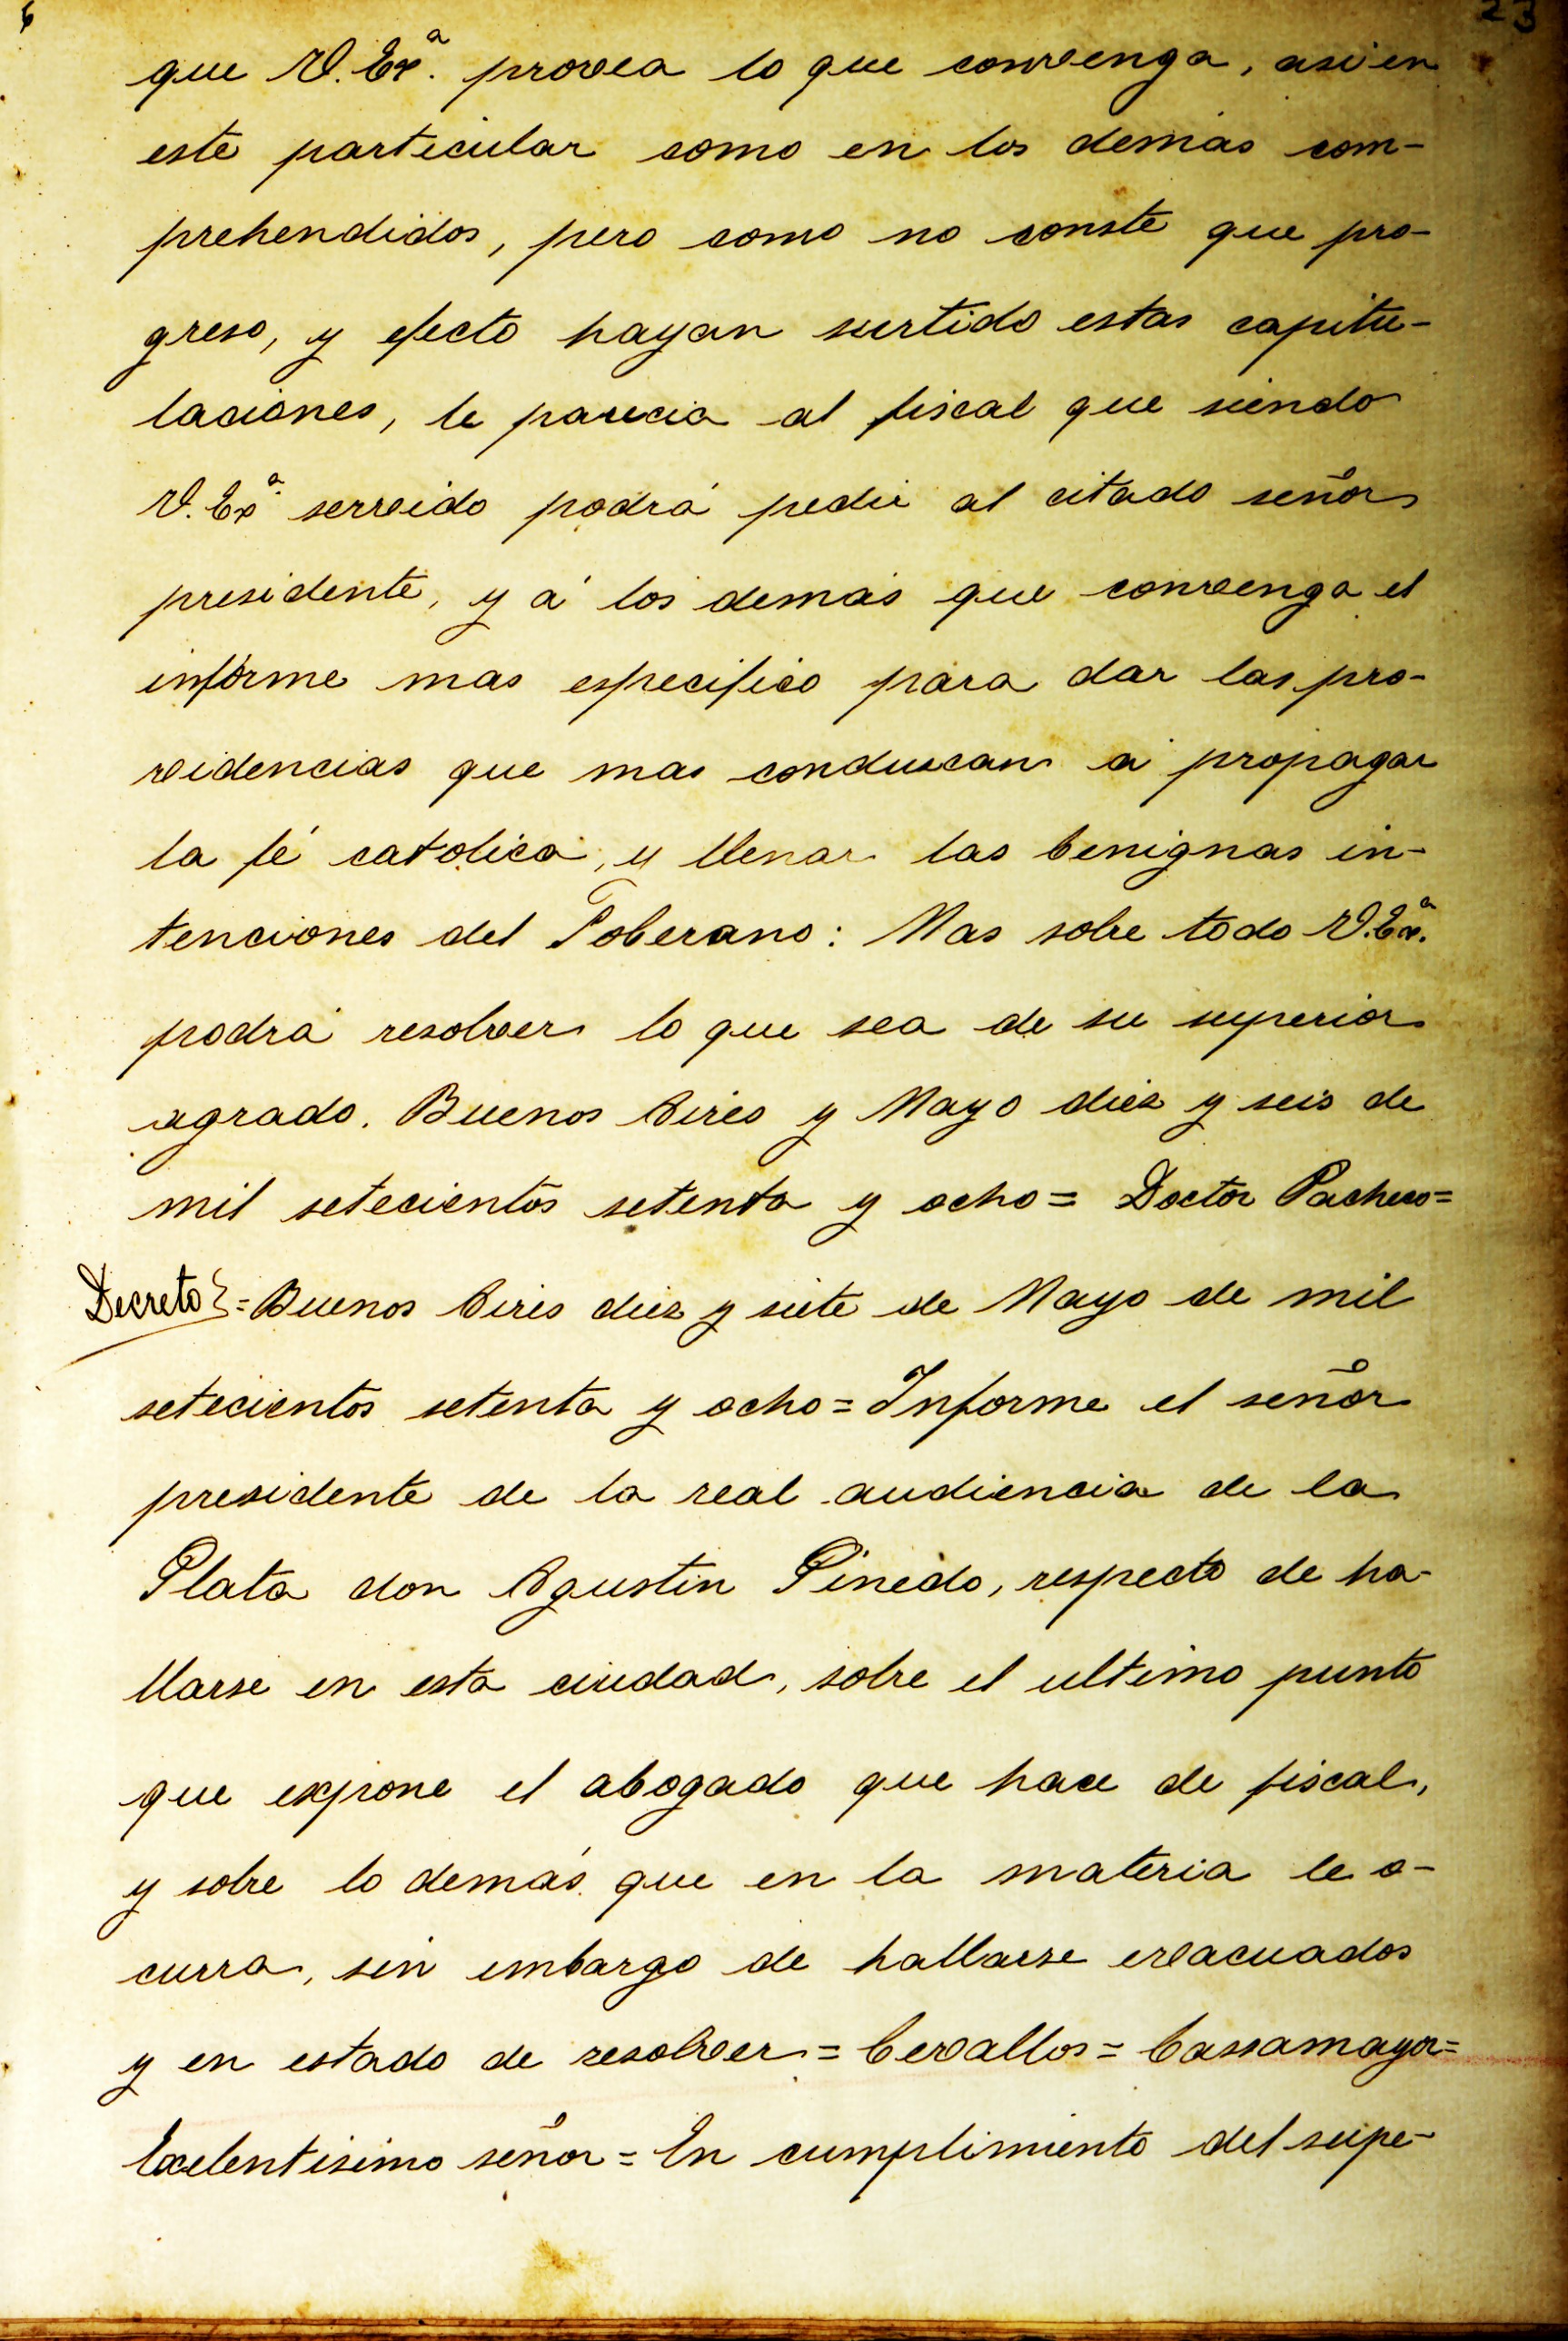 6 23
que V. Ex.ª provea lo que convenga, asi en
este particular como en los demás com-
prehendidos, pero como no conste que pro-
greso, y efecto hayan surtido estas capitu-
laciones, le parecia al fiscal que siendo
V. Ex.ª servido podrá pedir al citado señor
presidente, y á los demás que convenga el
informe mas especifico para dar las pro-
videncias que mas conduscan á propagar
la fé catolica, y llenar las benignas in-
tenciones del Soberano: Mas sobre todo V. Ex.ª
podrá resolver lo que sea de su superior
agrado. Buenos Aires y Mayo diez y seis de
mil setecientos setenta y ocho = Doctor Pacheco =
Decreto } = Buenos Aires diez y siete de Mayo de mil
setecientos setenta y ocho = Informe el señor
presidente de la real audiencia de la
Plata don Agustin Pinedo, respecto de ha-
llarse en esta ciudad, sobre el ultimo punto
que expone el abogado que hace de fiscal,
y sobre lo demás que en la materia le o-
curra, sin embargo de hallarse evacuados
y en estado de resolver = Cevallos = Cassamayor =
Excelentisimo señor = En cumplimiento del supe-